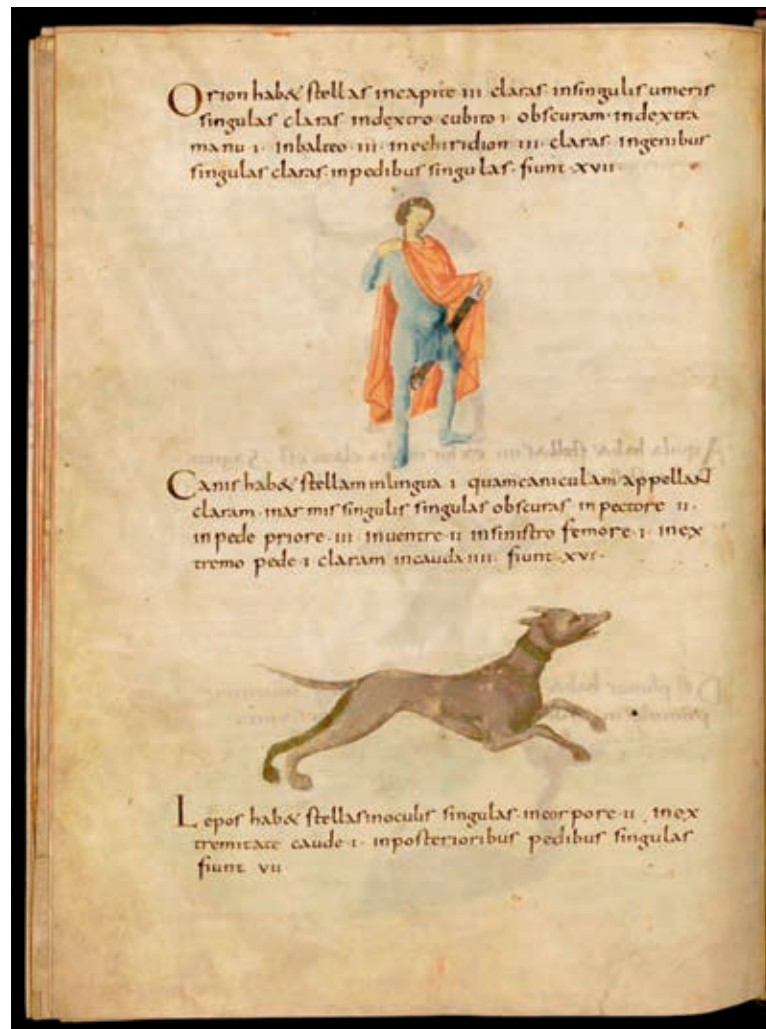 Orion hab& stellas incapite iii claras insingulis umeris
singulas claras indextro cubito i obscuram indextra
manu i inbalteo iii inechiridion iii claras ingenibus
singulas claras inpedibus singulas fiunt xvii
Canis hab& stellam inlingua i quamcaniculam appellant
claram inarmis singulis singulas obscuras inpectore ii
inpede priore iii inuentre ii insinistro femore i inex
tremo pede i claram incauda iiii fiunt xvi
Lepos hab& stellas inoculis singulas incorpore ii inex
tremitate caude i inposterioribus pedibus singulas
fiunt vii